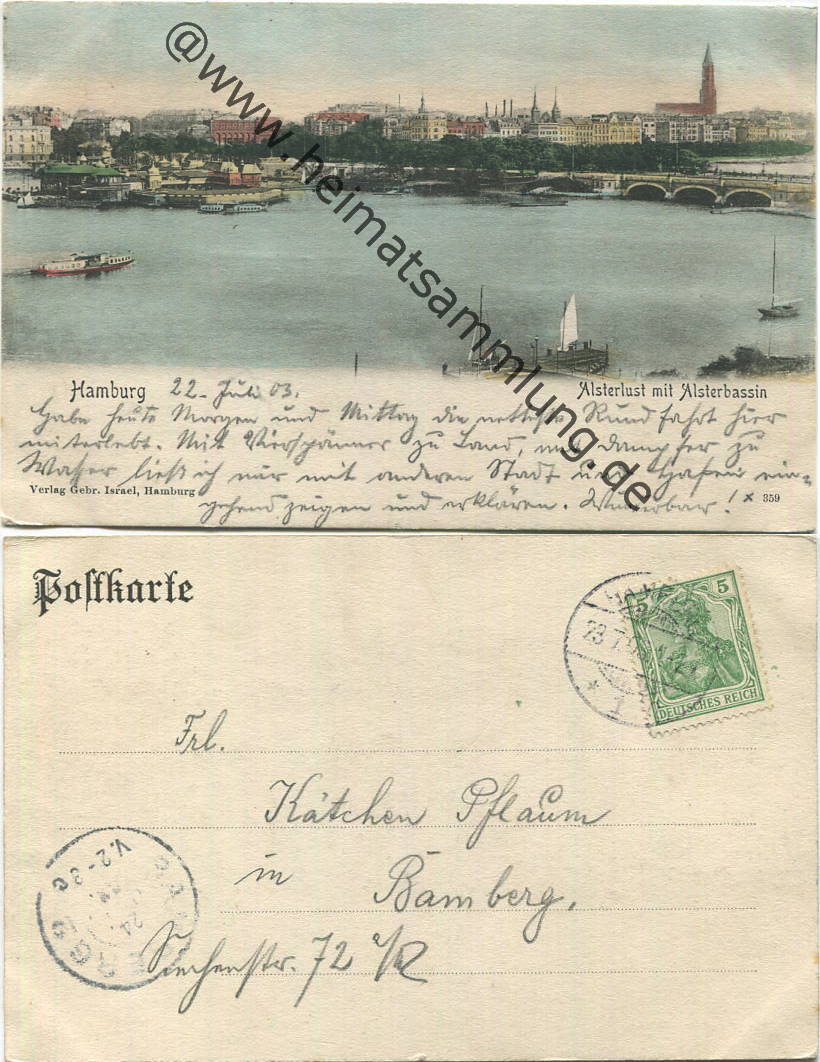 @www.heimatsammlung.de
Hamburg 22. Juli 03. Alsterlust mit Alsterbassin
Habe heute Morgen und Mittag die netteste Rundfahrt hier
miterlebt. Mit Vierspänner zu Land, mit Dampfer zu
Waßer ließ ich mir mit anderen Stadt und Hafen ein-
Verlag Gebr. Israel, Hamburg gehend zeigen und erklären. Wunderbar! x 359
Postkarte
5 5
23.7.
DEUTSCHES REICH
* 1
Frl.
Kätchen Pflaum
in
Bamberg.
V.2-3
24
72